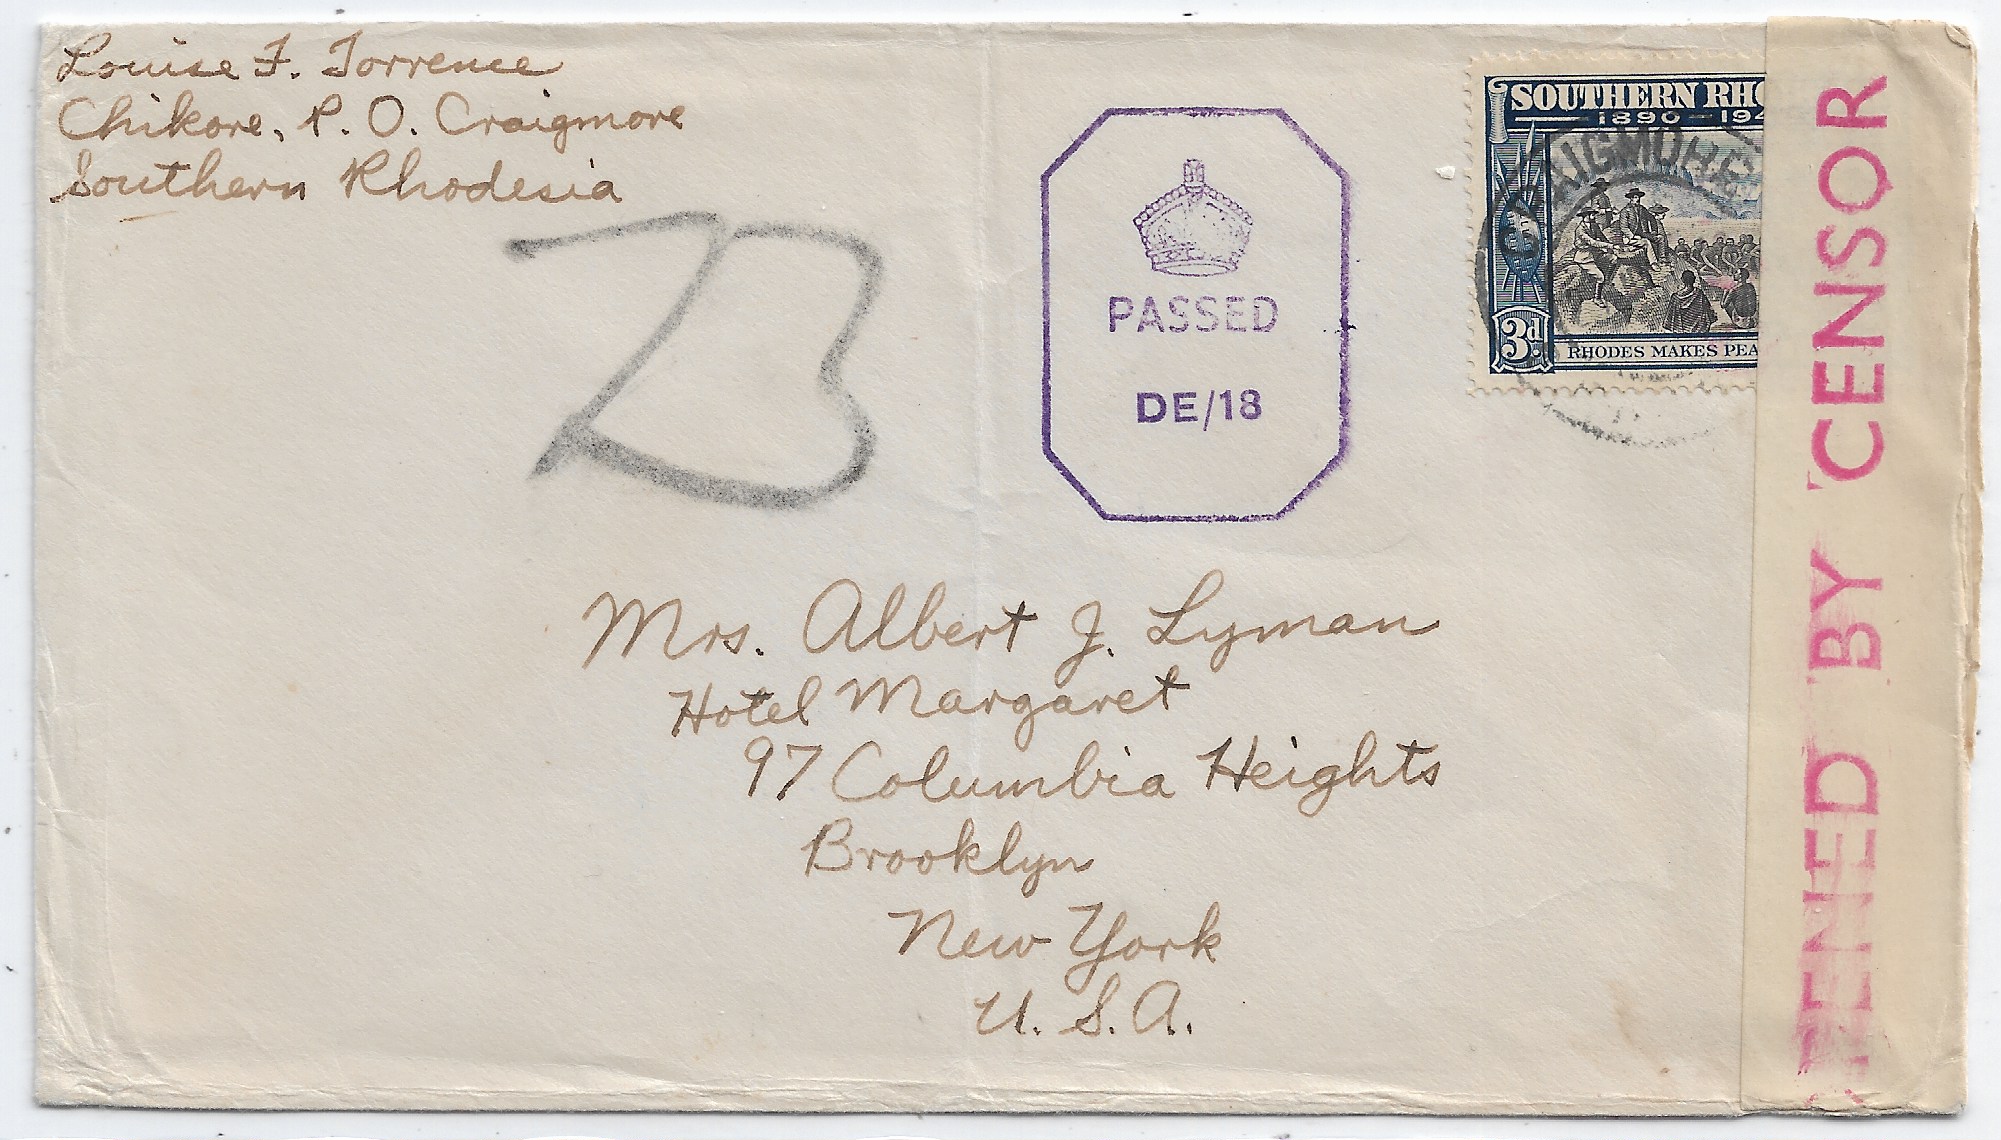 Louise F. Torrence
Chikore, P. O. Craigmore
Southern Rhodesia
PASSED
DE/18
SOUTHERN RHO
1890-194
CRAIGMORE
3d
RHODES MAKES PEA
ENED BY CENSOR
Mrs. Albert J. Lyman
Hotel Margaret
97 Columbia Heights
Brooklyn
New York
U. S. A.